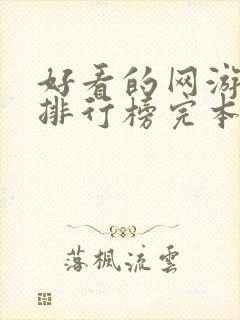 好看的网游
排行榜完本
落楓流雲